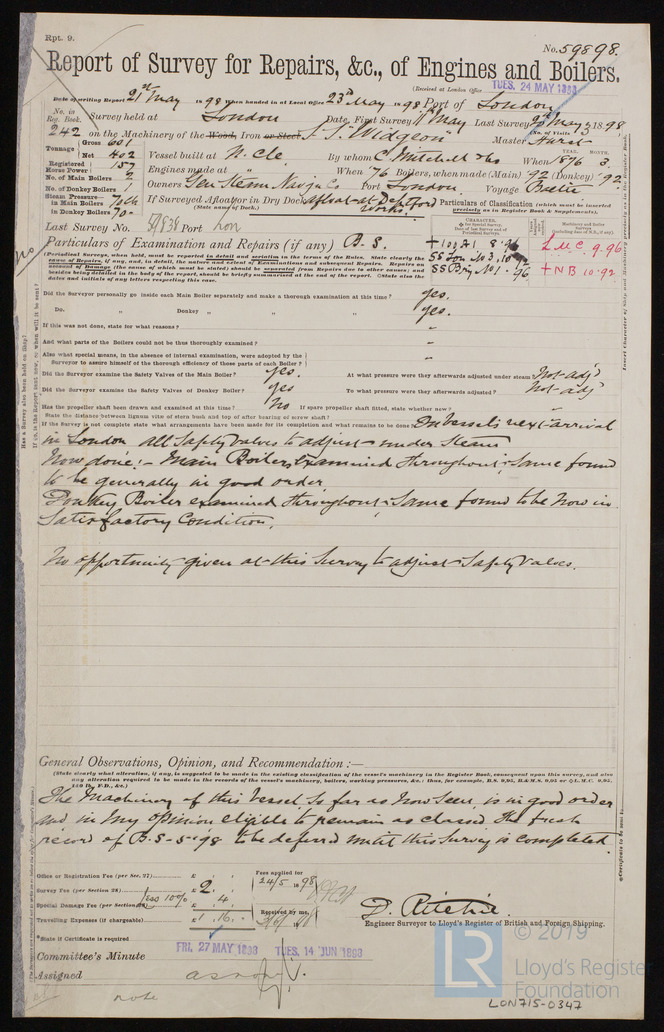 Rpt. 9.
No. 59898.
Report of Survey for Repairs, &c., of Engines and Boilers.
(Received at London Office TUES. 24 MAY 1898
Date of writing Report 21st May 1898 When handed in at Local Office 23rd May 1898 Port of London
No. in Reg. Book. Survey held at London Date, First Survey 11th May Last Survey May 1898
(No. of Visits 3
242 on the Machinery of the Wood, Iron or Steel S.S. "Widgeon" Master Hurst
Tonnage Gross 601
Net 402 Vessel built at N. Cle By whom C. Mitchell & Co When 1876 3
YEAR. MONTH.
Registered Horse Power 157 Engines made at " When 76 Boilers, when made (Main) 92 (Donkey) 92
No. of Main Boilers 2
No. of Donkey Boilers 1 Owners Gen Steam Navig Co Port London Voyage
Steam Pressure— in Main Boilers 70 lb If Surveyed Afloat or in Dry Dock Afloat at Deptford Works.
(State name of Dock.)
in Donkey Boilers 70 -
Particulars of Classification (which must be inserted precisely as in Register Book & Supplements).
Last Survey No. 57838 Port Lon
CHARACTER.
Machinery and Boiler Surveys
(including date of N.B., if any).
Particulars of Examination and Repairs (if any) B.S.
+100A1 8.96
LMC 9.96
SS Lon No 3, 10 92
SS No 1 - 96
+NB 10.92
(Periodical Surveys, when held, must be reported in detail and seriatim in the terms of the Rules. State clearly the cause of Repairs, if any, and, in detail, the nature and extent of Examinations and subsequent Repairs. Repairs on account of Damage (the cause of which must be stated) should be separated from Repairs due to other causes; and besides being detailed in the body of the report, should be briefly summarised at the end of the report. State also the dates and initials of any letters respecting this case.
Did the Surveyor personally go inside each Main Boiler separately and make a thorough examination at this time? yes.
Do. " Donkey " " " " yes.
If this was not done, state for what reasons? -
And what parts of the Boilers could not be thus thoroughly examined? -
Also what special means, in the absence of internal examination, were adopted by the Surveyor to assure himself of the thorough efficiency of those parts of each Boiler? -
Did the Surveyor examine the Safety Valves of the Main Boiler? yes. At what pressure were they afterwards adjusted under steam Not adjd
Did the Surveyor examine the Safety Valves of Donkey Boiler? yes To what pressure were they afterwards adjusted? Not adjd
Has the propeller shaft been drawn and examined at this time? No If spare propeller shaft fitted, state whether new? -
State the distance between lignum vitæ of stern bush and top of after bearing of screw shaft?
If the Survey is not complete state what arrangements have been made for its completion and what remains to be done On vessels next arrival
in London all Safety Valves to adjust under Steam
Now done:- Main Boilers Examined throughout. Same found
to be generally in good order.
Donkey Boiler examined throughout. Same found to be now in
Satisfactory Condition.
No opportunity given at this Survey to adjust Safety Valves.
General Observations, Opinion, and Recommendation :—
(State clearly what alteration, if any, is suggested to be made in the existing classification of the vessel's machinery in the Register Book, consequent upon this survey, and also any alteration required to be made in the records of the vessel's machinery, boilers, working pressures, &c.: thus, for example, B.S. 9,95, B.&M.S. 9,95 or L.M.C. 9,95, 110 lb., F.D., &c.)
The Machinery of this Vessel so far as now seen, is in good order
and in my opinion eligible to remain as classed. The fresh
record of B.S - 5 - 98 to be deferred until this Survey is completed.
Office or Registration Fee (per Sec. 27) £ : :
Fees applied for
Survey Fee (per Section 28) £ 2 : :
24/5 1898
Special Damage Fee (per Section 28) Less 10% £ : 4 :
Received by me,
Travelling Expenses (if chargeable) £ 1 : 16 : -
D. Ritchie.
Engineer Surveyor to Lloyd's Register of British and Foreign Shipping.
State if Certificate is required
Committee's Minute FRI. 27 MAY 1898 TUES. 14 JUN 1898
Assigned as now
note
© 2019
LR
Lloyd's Register
Foundation
LON715-0347